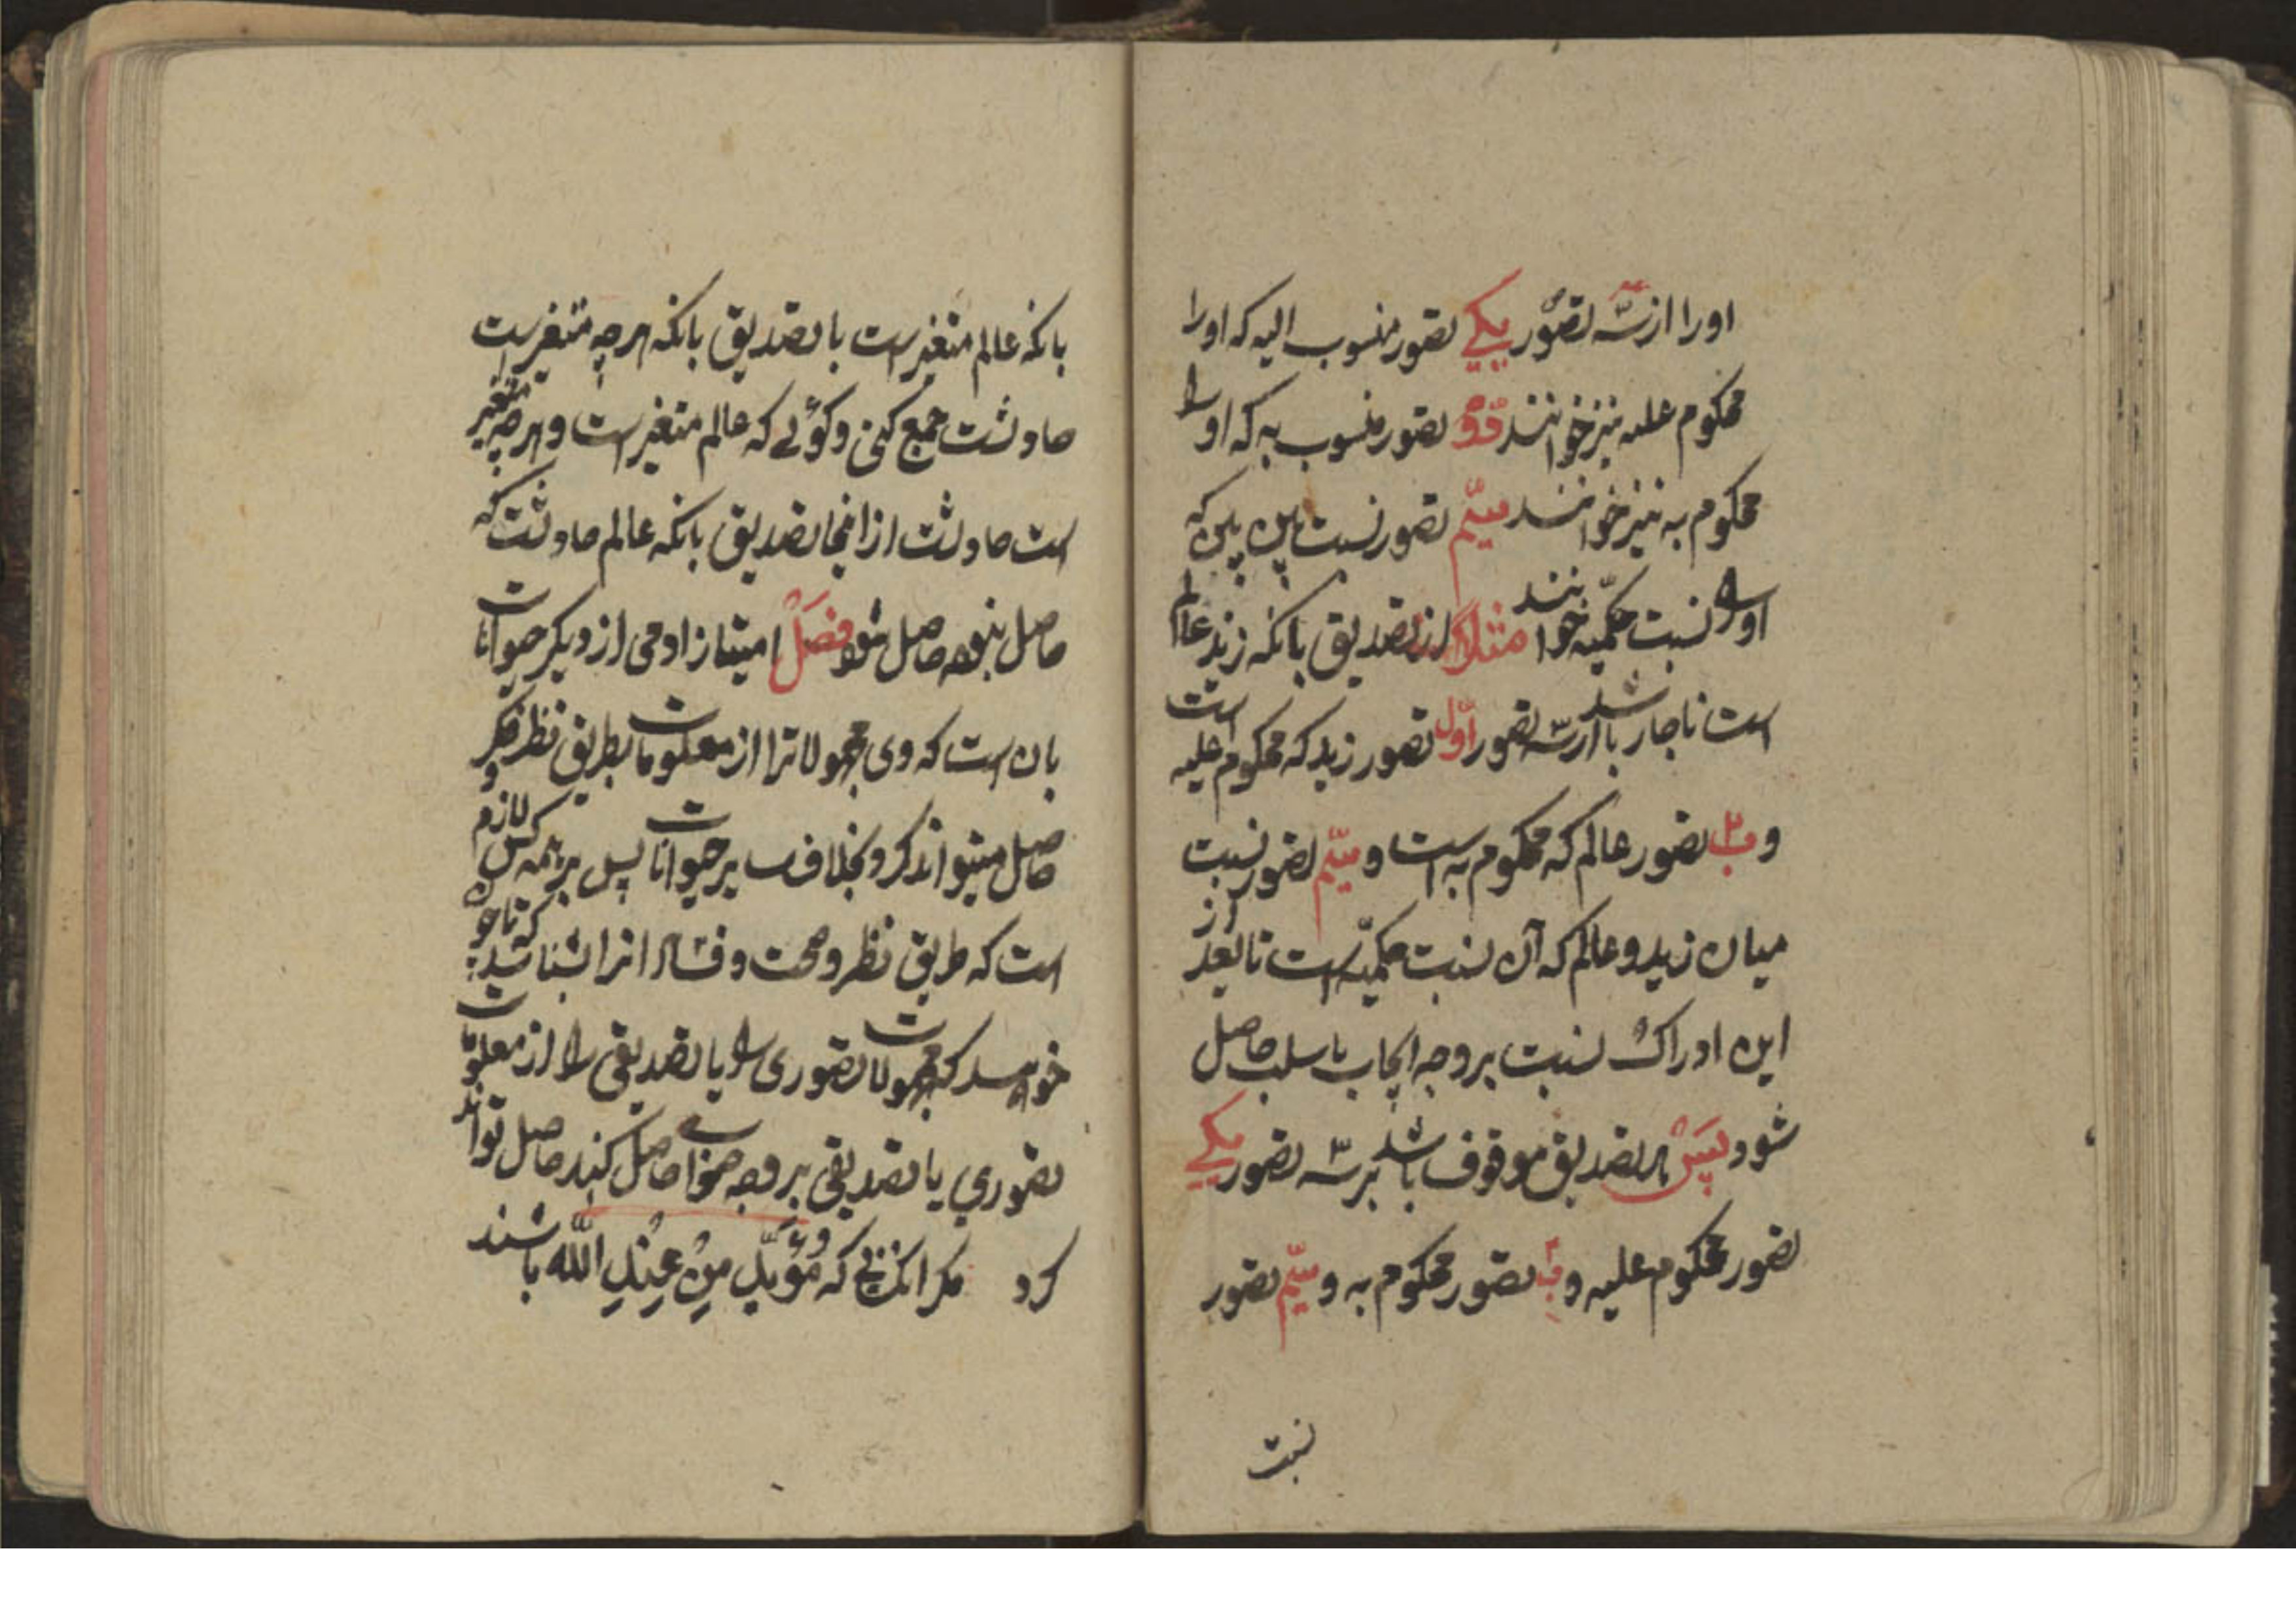 اورا از سه تصور یکی تصور منسوب الیه که اورا
محکوم علیه نیز خوانند دوم تصور منسوب به که اورا
محکوم به نیز خوانند سیم تصور نسبت بین بین که
اورا نسبت حکمیه خوانند مثلا از تصدیق بانکه زید عالم
است ناچار باشد از سه تصور اول تصور زید که محکوم علیه است
و تصور عالم که محکوم به است و سیم تصور نسبت
میان زید و عالم که آن نسبت حکمیه است تا بعد از
این ادراک نسبت بر وجه ایجاب یا سلب حاصل
شود پس هر تصدیق موقوف باشد بر سه تصور یکی
تصور محکوم علیه و تصور محکوم به و سیم تصور
نسبت
بانکه عالم متغیر است با تصدیق بانکه هر چه متغیر است
حادثست جمع کنی و کوئی که عالم متغیر است و هر چه متغیر
است حادثست از انجا تصدیق بانکه عالم حادثست که
حاصل نبوده حاصل شود فصل امتیاز ادمی از دیکر حیوانات
بان است که وی مجهولاترا از معلومات بطریق نظر و فکر
حاصل میتواند کرد بخلاف سایر حیوانات پس بر همه کس لازم
است که طریق نظر و صحت و فساد انرا بشناسد که تا چون
خواهند که مجهولات تصوری را یا تصدیقی را از معلومات
تصوری یا تصدیقی بر وجه صواب حاصل کنند حاصل توانند
کرد مکر انکسانی که مؤید من عند الله باشند